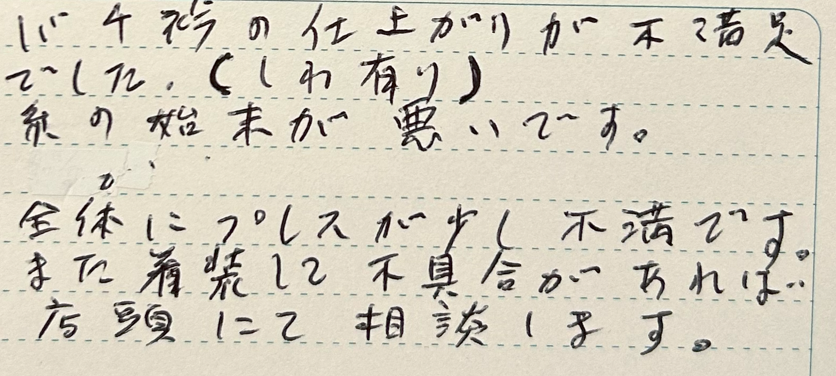 バチ衿の仕上がりが不満足
でした。(しわ有り)
糸の始末が悪いです。
全体にプレスが少し不満です。
また着装して不具合があれば
店頭にて相談します。